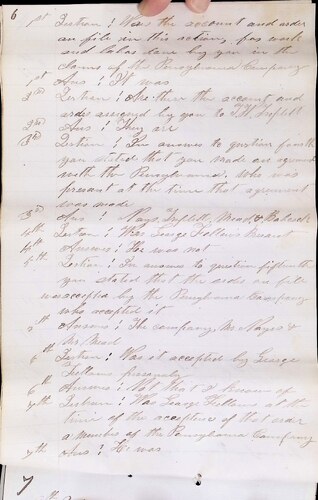 6
1st Question: Was the account and order
on file in this action, for work
and labor done by you in the
name of the Pennsylvania Company
1st Ans: It was
2nd Question: Are there the account and
order assigned by you to T.H.
2nd Ans: They are
3rd Question: In answer to question fourth
you stated that you made an agreement
with the Pennsylvania. Who was
present at the time that agreement
was made
3rd Ans: Mead &
4th Question: Was George Fellows present
4th Answer: He was not
5th Question: In answer to question fifteenth
you stated that the order on file
was accepted by the Pennsylvania Company
who accepted it
5th Answer: The company, Mr. Noyes &
Mr. Mead
6th Question: Was it accepted by George
Fellows personally
6th Answer: Not that I know of
7th Question: Was George Fellows at the
time of the acceptance of that order
a member of the Pennsylvania Company
7th Ans: He was
7